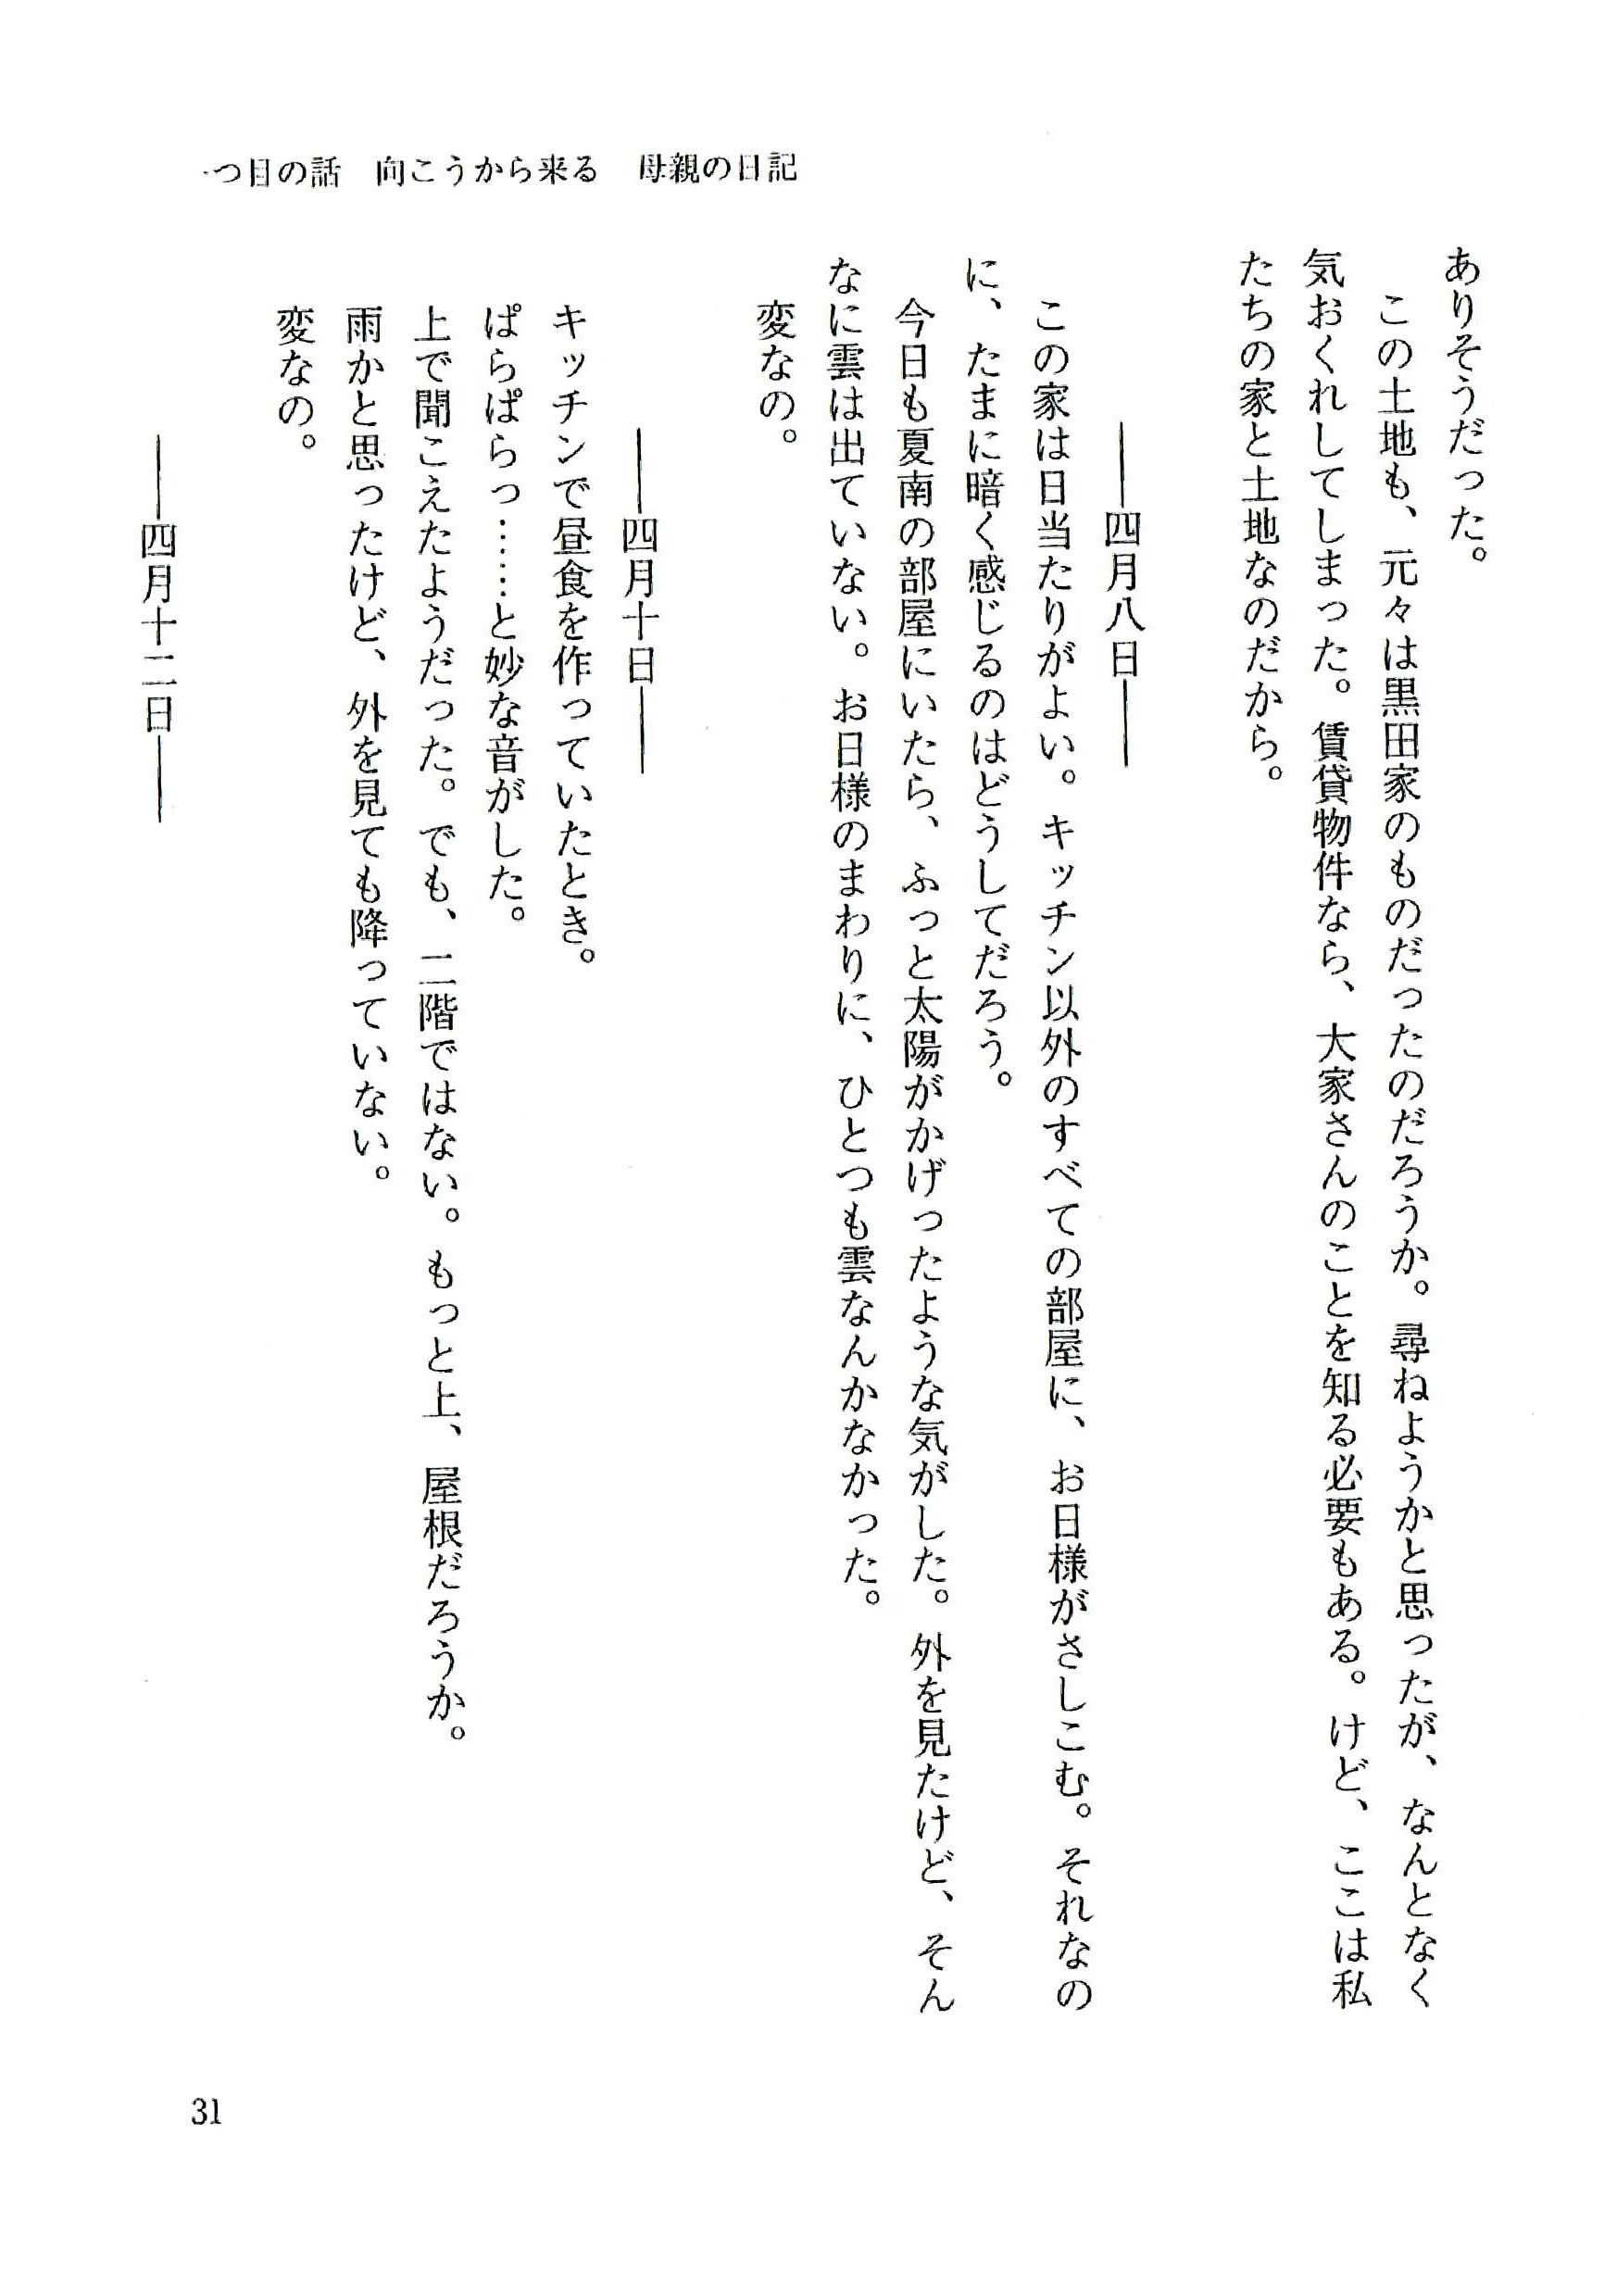 一つ目の話　向こうから来る　母親の日記
ありそうだった。
　この土地も、元々は黒田家のものだったのだろうか。尋ねようかと思ったが、なんとなく
気おくれしてしまった。賃貸物件なら、大家さんのことを知る必要もある。けど、ここは私
たちの家と土地なのだから。
――四月八日――
　この家は日当たりがよい。キッチン以外のすべての部屋に、お日様がさしこむ。それなの
に、たまに暗く感じるのはどうしてだろう。
　今日も夏南の部屋にいたら、ふっと太陽がかげったような気がした。外を見たけど、そん
なに雲は出ていない。お日様のまわりに、ひとつも雲なんかなかった。
　変なの。
――四月十日――
　キッチンで昼食を作っていたとき。
　ぱらぱらっ……と妙な音がした。
　上で聞こえたようだった。でも、二階ではない。もっと上、屋根だろうか。
　雨かと思ったけど、外を見ても降っていない。
　変なの。
――四月十二日――
31